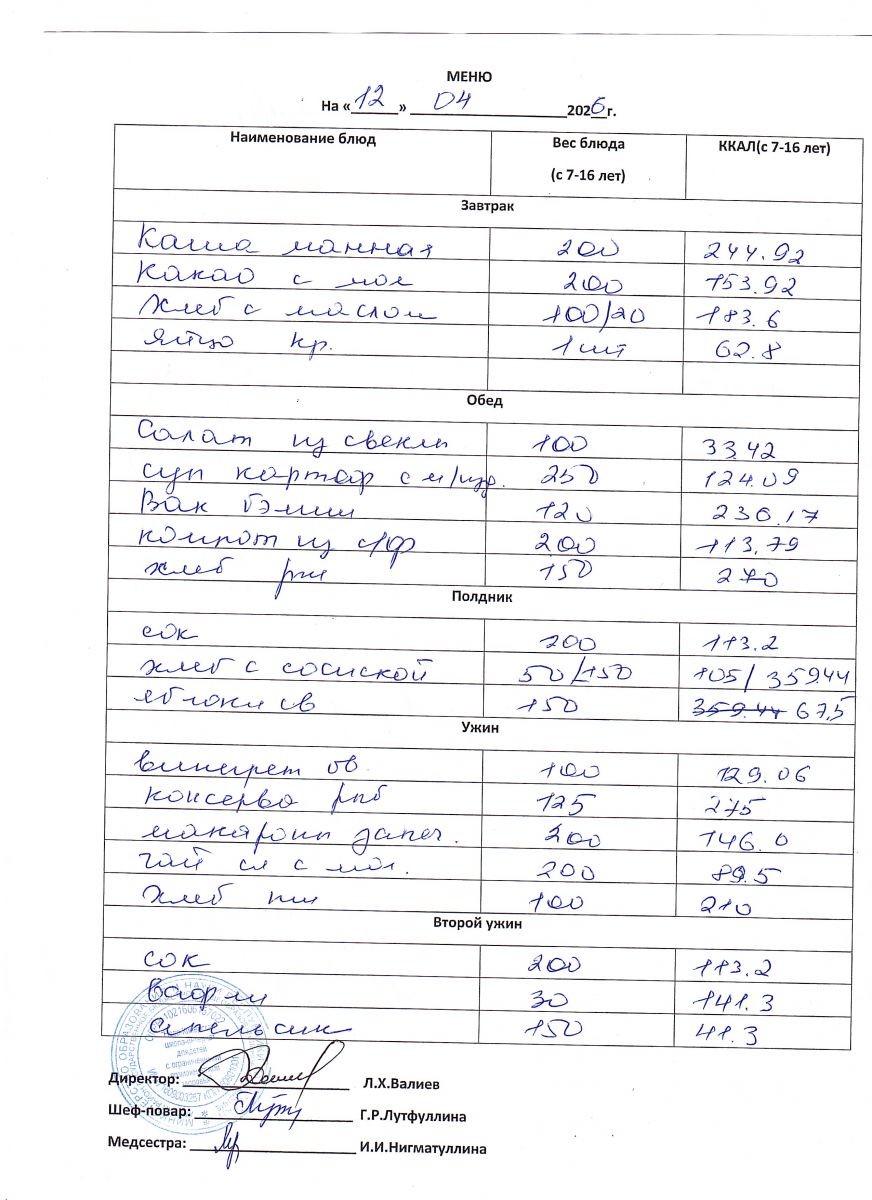 МЕНЮ
На «12» 04 2026г.
Наименование блюд Вес блюда (с 7-16 лет) ККАЛ(с 7-16 лет)
Завтрак
Каша манная 200 244.92
Какао с мол 200 153.92
Хлеб с маслом 100/20 183.6
Яйцо кр. 1 шт 62.8
Обед
Салат из свеклы 100 33.42
суп картоф с м/изд. 250 124.09
Вак бэлиш 120 236.17
компот из с/ф 200 113.79
хлеб рж 150 270
Полдник
сок 200 113.2
хлеб с сосиской 50/150 105/359.44
яблоки св 150 359.44 67,5
Ужин
винегрет ов. 100 129.06
консерва рыб 125 275
макароны запеч. 200 146.0
чай сл с мол. 200 89.5
Хлеб пш 100 210
Второй ужин
сок 200 113.2
Вафли 30 141.3
апельсин 150 41.3
Директор: Л.Х.Валиев
Шеф-повар: Г.Р.Лутфуллина
Медсестра: И.И.Нигматуллина